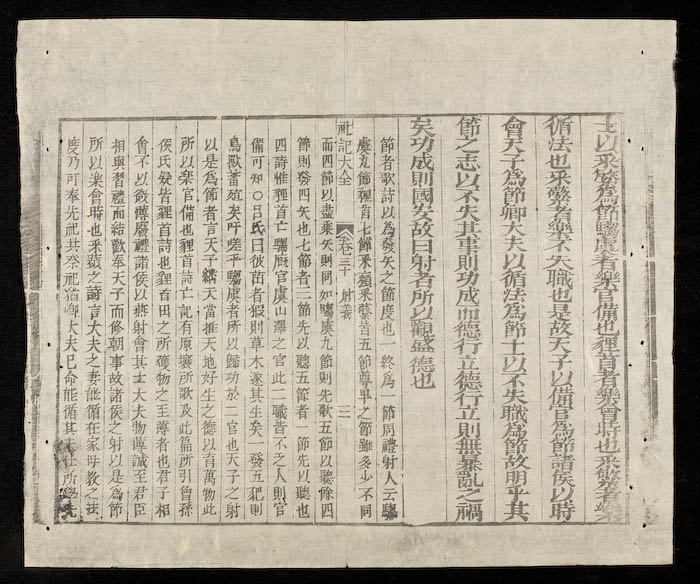 士以采蘩爲節騶虞者樂官備也貍首者樂會時也采蘋者樂
循法也采蘩者樂不失職也是故天子以備官爲節諸侯以時
會天子爲節卿大夫以循法爲節士以不失職爲節故明乎其
節之志以不失其事則功成而德行立德行立則無暴亂之禍
矣功成則國安故曰射者所以觀盛德也
節者歌詩以爲發矢之節度也一終爲一節周禮射人云騶
虞九節貍首七節采蘋采蘩皆五節尊卑之節雖多少不同
礼記大全 卷三十 射義 三
而四節以盡乘矢則同如騶虞九節則先歌五節以聽餘四
節則發四矢也七節者三節先以聽五節者一節先以聽也
四詩惟貍首亡騶廐官虞山澤之官此二職皆不乏人則官
備可知○呂氏曰彼茁者葭則草木遂其生矣一發五豝則
鳥獸蕃殖矣吁嗟乎騶虞者所以歸功於二官也天子之射
以是爲節者言天子繼天當推天地好生之德以育萬物此
所以樂官備也貍首詩亡記有原壤所歌及此篇所引曾孫
侯氏疑皆貍首詩也貍首田之所獲物之至薄者也君子相
會不以微薄廢禮諸侯以燕射會其士大夫物薄誠至君臣
相與習禮而結歡奉天子而修朝事故諸侯之射以是爲節
所以樂會時也采蘋之詩言大夫之妻能循在家母教之法
度乃可奉先祖共祭祀猶卿大夫已命能循其未仕所學先